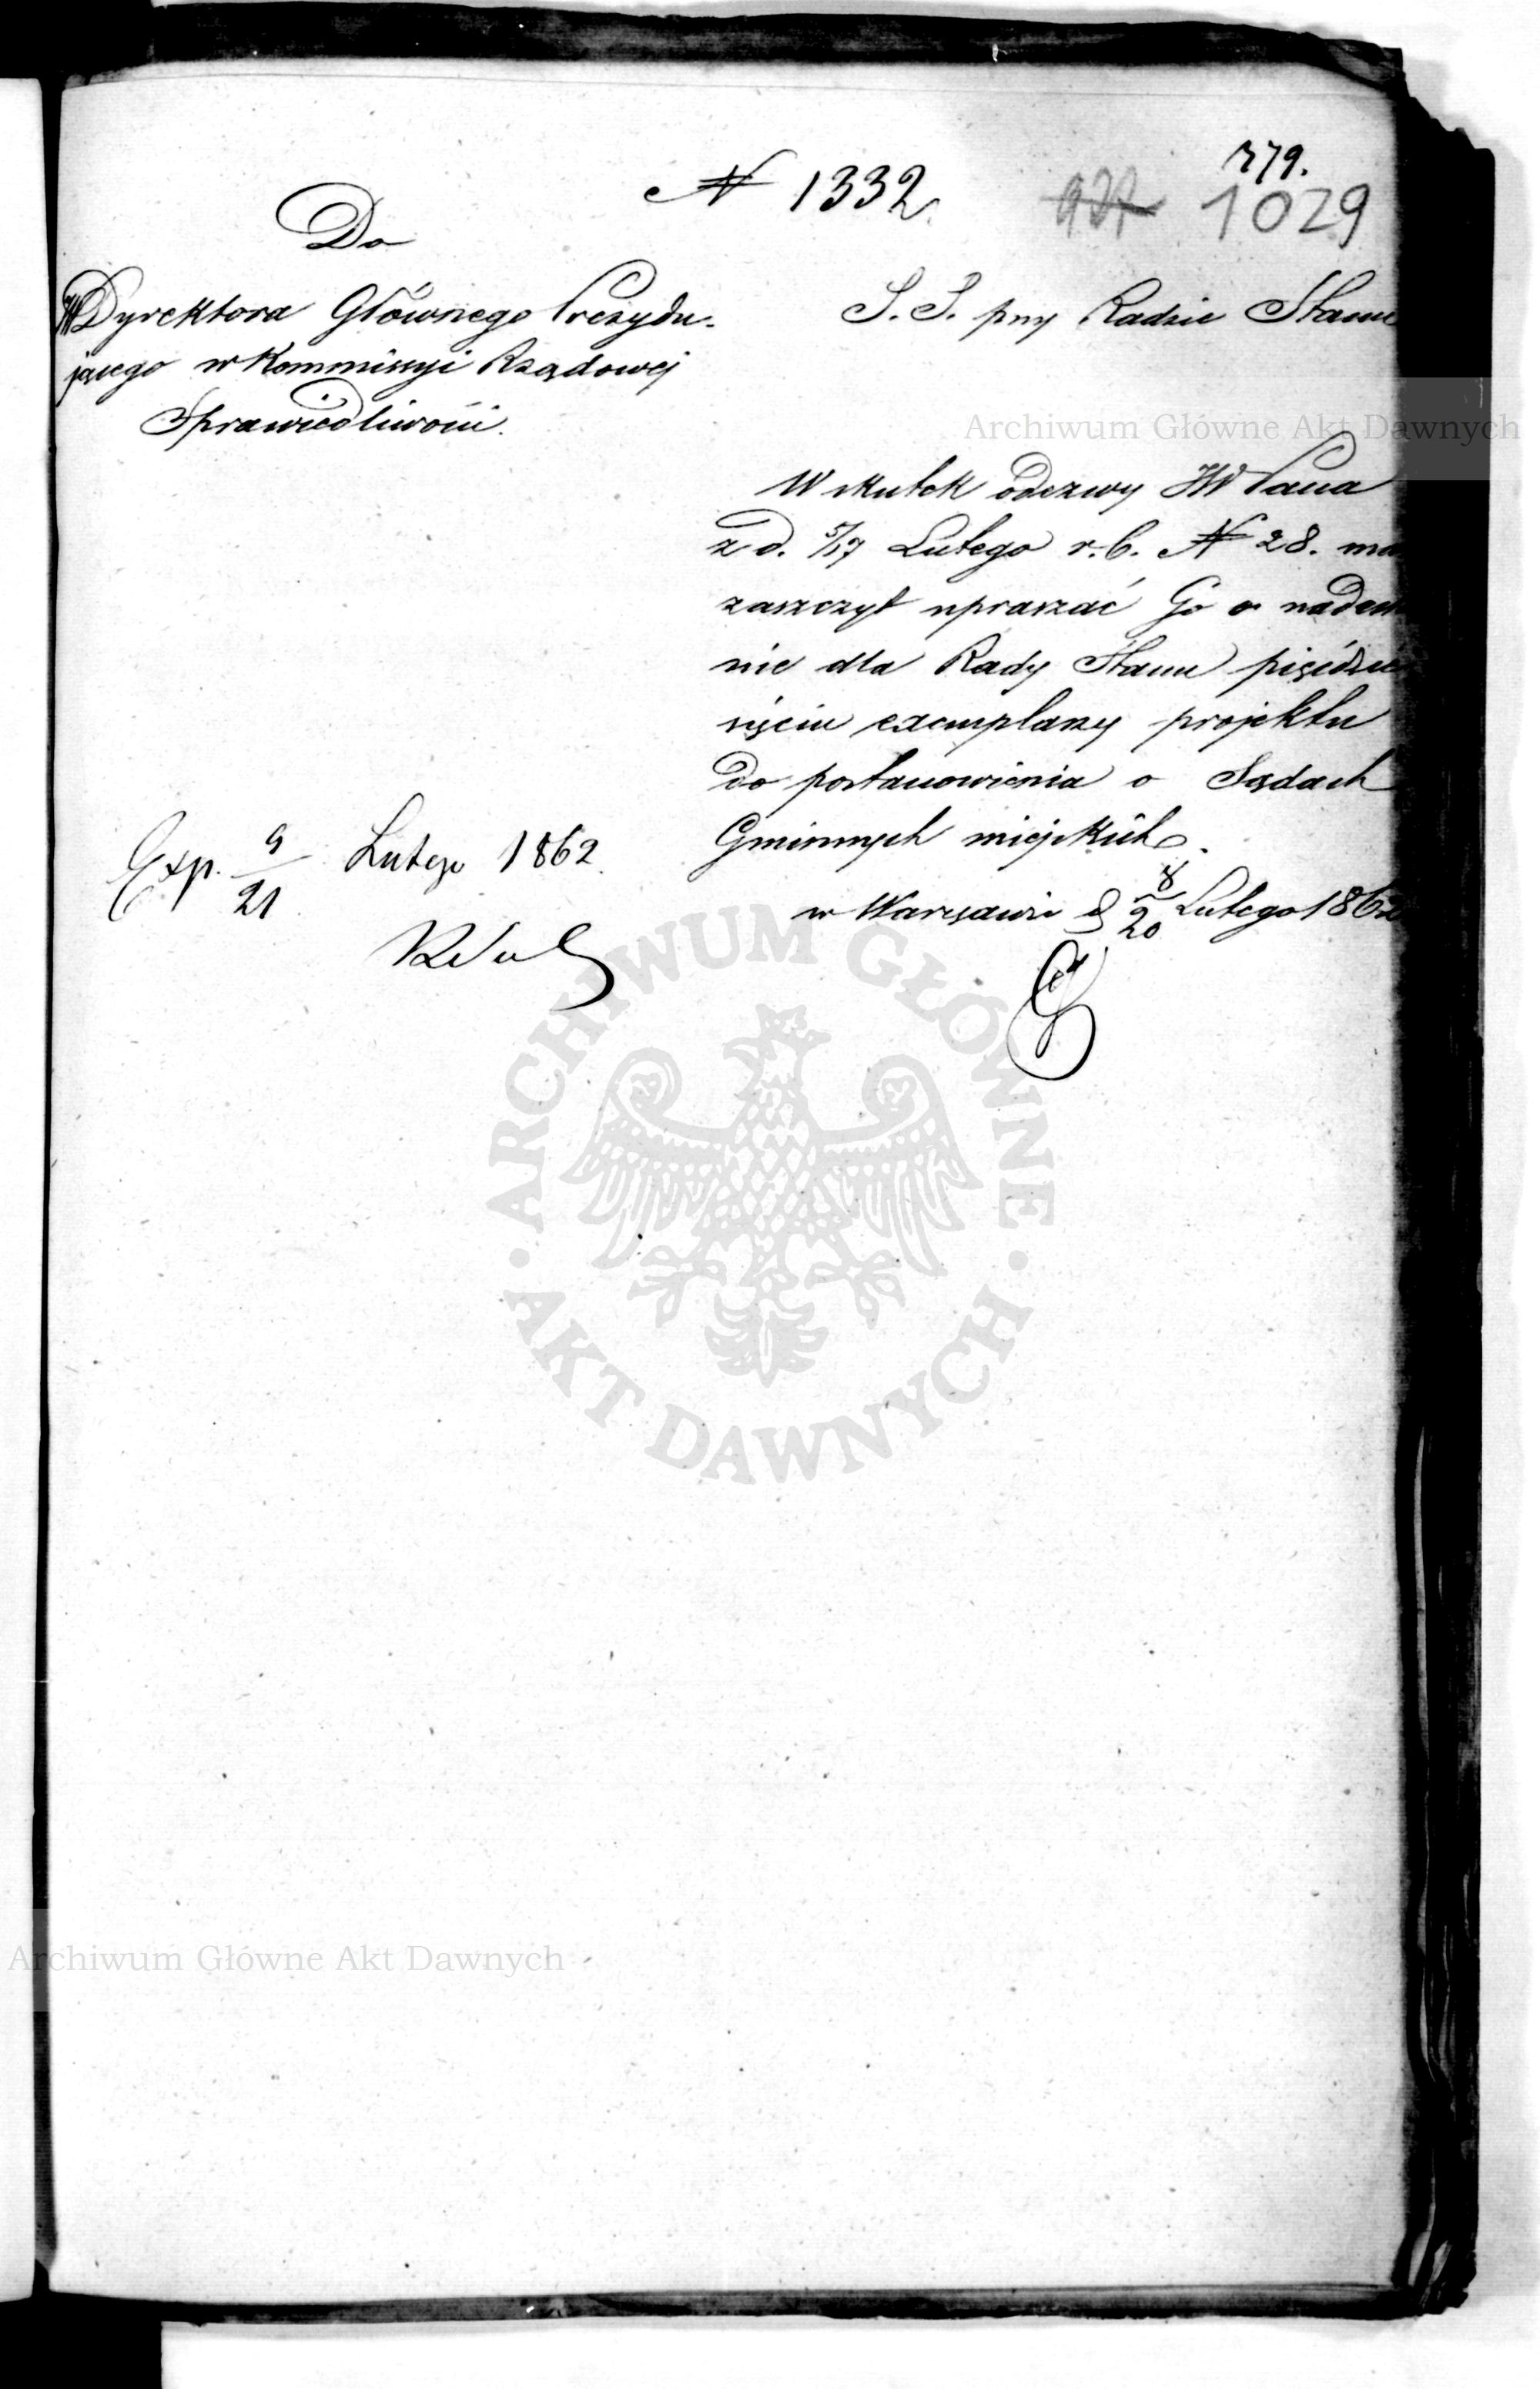 379.
№ 1332.
937 1029
Do
JW Dyrektora Głównego Prezydu-
jącego w Kommissyi Rządowej
Sprawiedliwości.
S. S. przy Radzie Stanu
Archiwum Główne Akt Dawnych
W skutek odezwy JW Pana
z d. 5/17 Lutego r. b. № 28. ma
zaszczyt upraszać Go o nadesła
nie dla Rady Stanu pięćdzie
sięciu exemplarzy projektu
do postanowienia o Sądach
Gminnych miejskich.
w Warszawie d 8/20 Lutego 1862
Exp. 9/21 Lutego 1862.
ARCHIWUM GŁÓWNE
· AKT DAWNYCH ·
Archiwum Główne Akt Dawnych